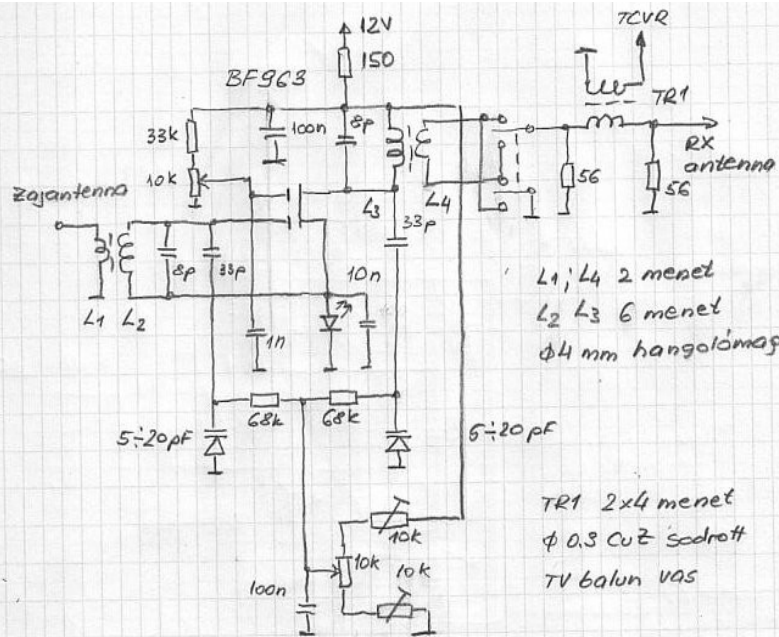 TCVR
12V
150
BF963
TR1
100n
8p
33k
RX
antenna
10k
56
56
Zajantenna
L3
L4
33p
8p
33p
10n
L1 L2
1n
L1; L4 2 menet
L2 L3 6 menet
φ4 mm hangolómag
68k
68k
5÷20pF
5÷20pF
10k
TR1 2x4 menet
φ 0.3 CuZ sodrott
TV balun vas
10k
10k
100n